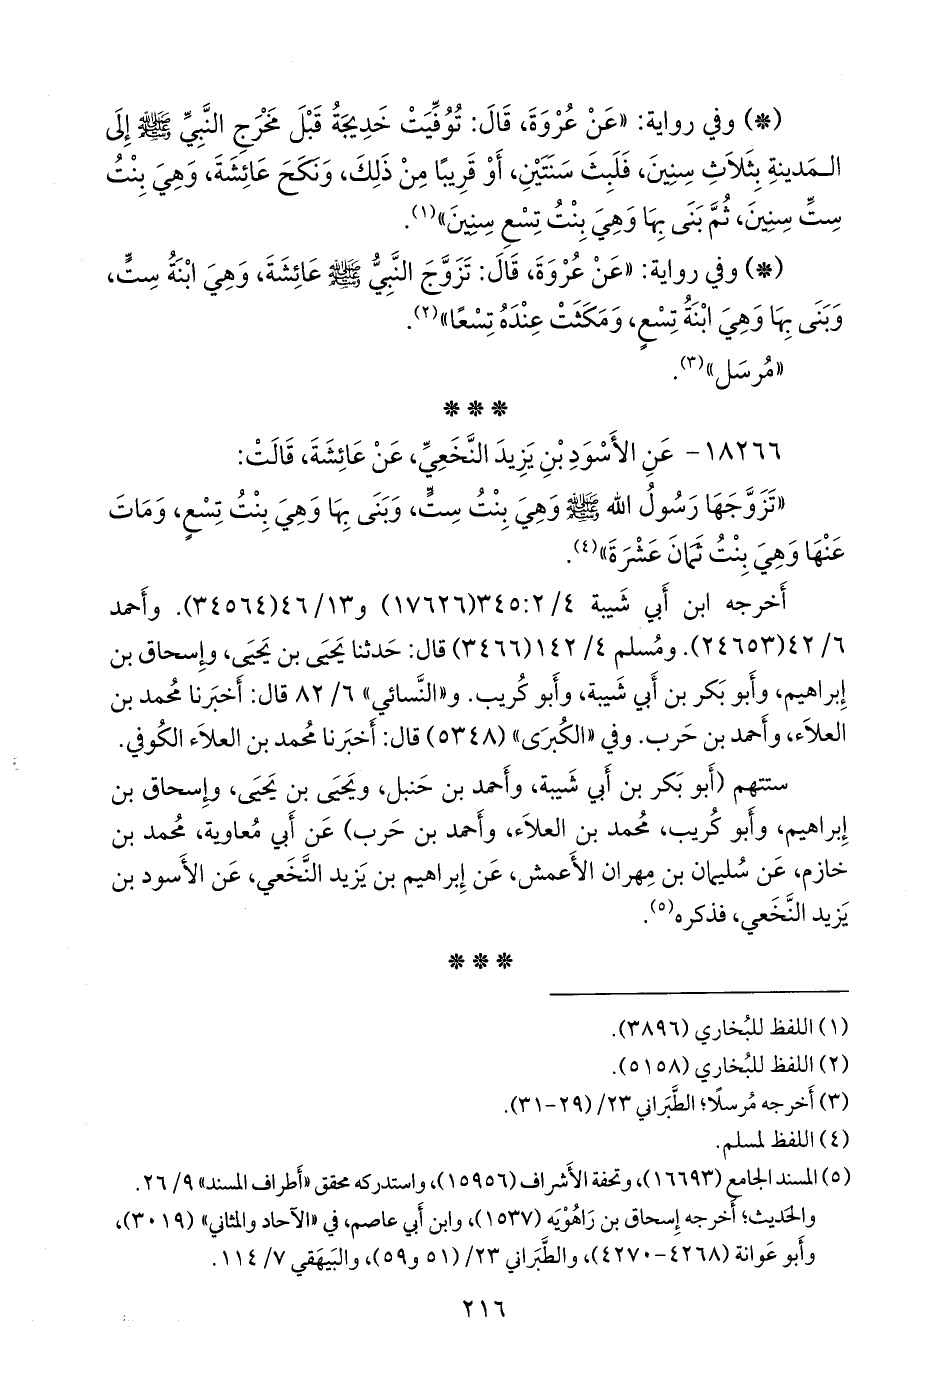 (*) وفي رواية: «عَنْ عُرْوَةَ، قَالَ: تُوُفِّيَتْ خَدِيجَةُ قَبْلَ مَخْرَجِ النَّبِيِّ ﷺ إِلَى
الـمَدينةِ بِثَلاَثِ سِنِينَ، فَلَبِثَ سَنَتَيْنِ، أَوْ قَرِيبًا مِنْ ذَلِكَ، وَنَكَحَ عَائِشَةَ، وَهِيَ بِنْتُ
سِتِّ سِنِينَ، ثُمَّ بَنَى بِهَا وَهِيَ بِنْتُ تِسْعِ سِنِينَ»(١).
(*) وفي رواية: «عَنْ عُرْوَةَ، قَالَ: تَزَوَّجَ النَّبِيُّ ﷺ عَائِشَةَ، وَهِيَ ابْنَةُ سِتٍّ،
وَبَنَى بِهَا وَهِيَ ابْنَةُ تِسْعٍ، وَمَكَثَتْ عِنْدَهُ تِسْعًا»(٢).
«مُرسَل»(٣).
* * *
١٨٢٦٦- عَنِ الأَسْوَدِ بْنِ يَزِيدَ النَّخَعِيِّ، عَنْ عَائِشَةَ، قَالَتْ:
«تَزَوَّجَهَا رَسُولُ الله ﷺ وَهِيَ بِنْتُ سِتٍّ، وَبَنَى بِهَا وَهِيَ بِنْتُ تِسْعٍ، وَمَاتَ
عَنْهَا وَهِيَ بِنْتُ ثَمَانَ عَشْرَةَ»(٤).
أَخرجه ابن أَبي شَيبة ٤/ ٣٤٥:٢(١٧٦٢٦) و١٣/ ٤٦(٣٤٥٦٤). وأَحمد
٦/ ٤٢(٢٤٦٥٣). ومُسلم ٤/ ١٤٢(٣٤٦٦) قال: حَدثنا يَحيَى بن يَحيَى، وإِسحاق بن
إِبراهيم، وأَبو بَكر بن أَبي شَيبة، وأَبو كُريب. و«النَّسائي» ٦/ ٨٢ قال: أَخبَرنا مُحمد بن
العلاَء، وأَحمد بن حَرب. وفي «الكُبرَى» (٥٣٤٨) قال: أَخبَرنا مُحمد بن العلاَء الكُوفي.
ستتهم (أَبو بَكر بن أَبي شَيبة، وأَحمد بن حَنبل، ويَحيَى بن يَحيَى، وإِسحاق بن
إِبراهيم، وأَبو كُريب، مُحمد بن العلاَء، وأَحمد بن حَرب) عَن أَبي مُعاوية، مُحمد بن
خازم، عَن سُليمان بن مِهران الأَعمش، عَن إِبراهيم بن يَزيد النَّخَعي، عَن الأَسود بن
يَزيد النَّخَعي، فذكره(٥).
* * *
(١) اللفظ للبُخاري (٣٨٩٦).
(٢) اللفظ للبُخاري (٥١٥٨).
(٣) أَخرجه مُرسلًا؛ الطَّبَراني ٢٣/ (٢٩-٣١).
(٤) اللفظ لمسلم.
(٥) المسند الجامع (١٦٦٩٣)، وتحفة الأَشراف (١٥٩٥٦)، واستدركه محقق «أَطراف المسند» ٩/ ٢٦.
والحَديث؛ أَخرجه إِسحاق بن رَاهُوْيَه (١٥٣٧)، وابن أَبي عاصم، في «الآحاد والمثاني» (٣٠١٩)،
وأَبو عَوانة (٤٢٦٨-٤٢٧٠)، والطَّبَراني ٢٣/ (٥١ و٥٩)، والبَيهَقي ٧/ ١١٤.
٢١٦